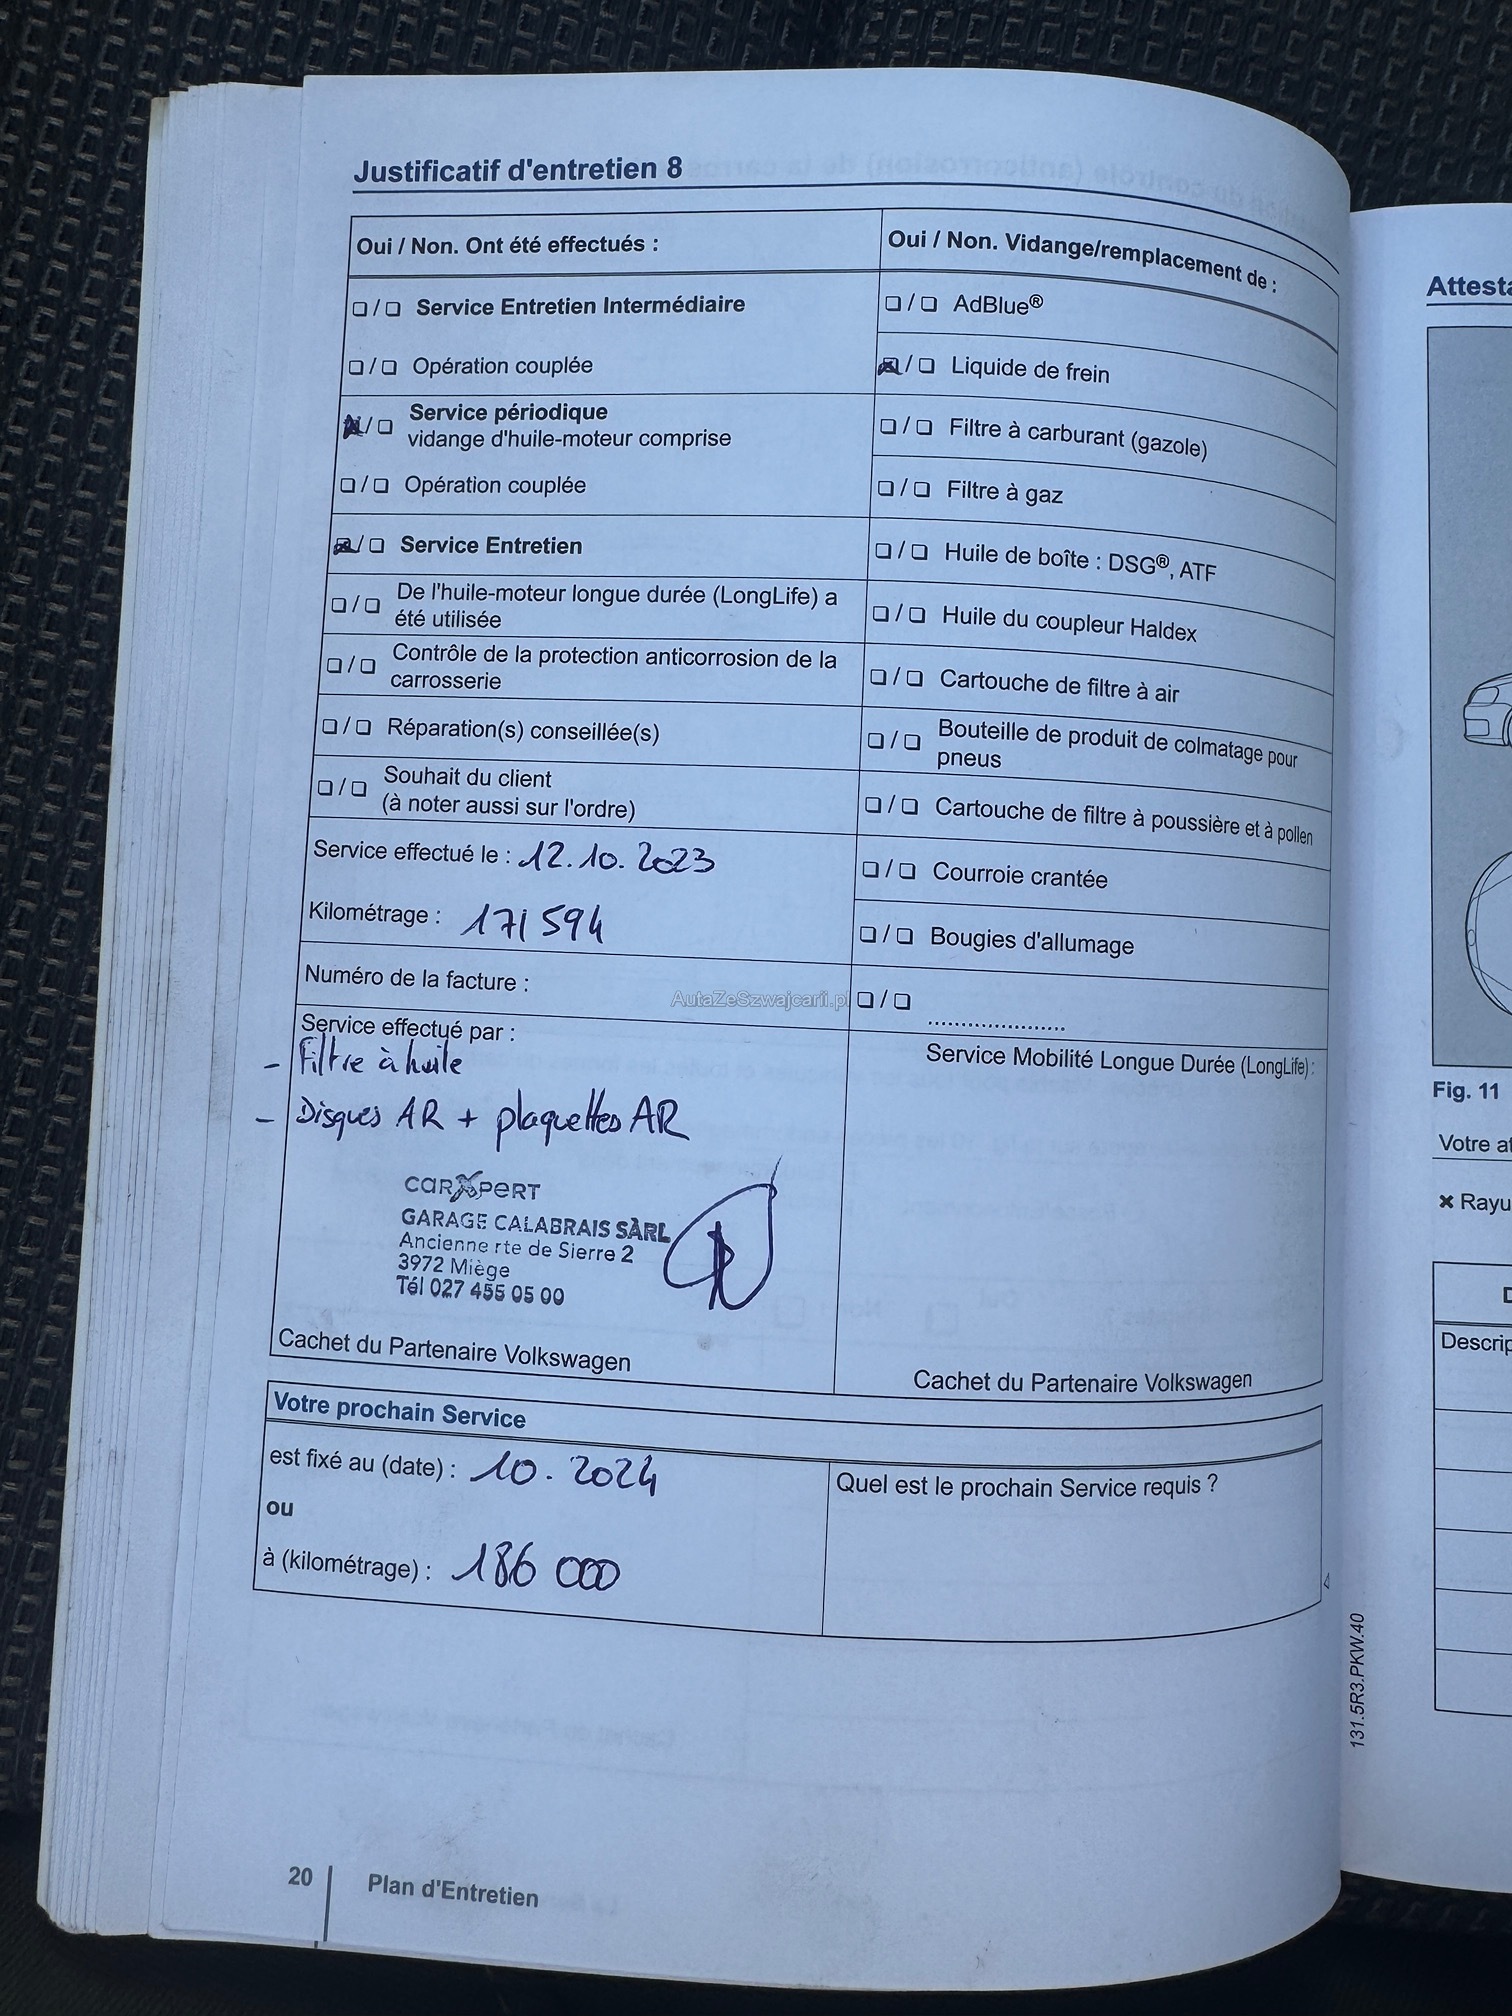 Justificatif d'entretien 8
Oui / Non. Ont été effectués :
❏ / ❏ Service Entretien Intermédiaire
❏ / ❏ Opération couplée
❏ / ❏ Service périodique
vidange d'huile-moteur comprise
❏ / ❏ Opération couplée
❏ / ❏ Service Entretien
❏ / ❏ De l'huile-moteur longue durée (LongLife) a
été utilisée
❏ / ❏ Contrôle de la protection anticorrosion de la
carrosserie
❏ / ❏ Réparation(s) conseillée(s)
❏ / ❏ Souhait du client
(à noter aussi sur l'ordre)
Service effectué le : 12.10.2023
Kilométrage : 171 594
Numéro de la facture :
Service effectué par :
- Filtre à huile
- Disques AR + plaquettes AR
carXpert
GARAGE CALABRAIS SÀRL
Ancienne rte de Sierre 2
3972 Miège
Tél 027 455 05 00
Cachet du Partenaire Volkswagen
Oui / Non. Vidange/remplacement de :
❏ / ❏ AdBlue®
❏ / ❏ Liquide de frein
❏ / ❏ Filtre à carburant (gazole)
❏ / ❏ Filtre à gaz
❏ / ❏ Huile de boîte : DSG®, ATF
❏ / ❏ Huile du coupleur Haldex
❏ / ❏ Cartouche de filtre à air
❏ / ❏ Bouteille de produit de colmatage pour
pneus
❏ / ❏ Cartouche de filtre à poussière et à pollen
❏ / ❏ Courroie crantée
❏ / ❏ Bougies d'allumage
❏ / ❏ .....................
Service Mobilité Longue Durée (LongLife) :
Cachet du Partenaire Volkswagen
AutaZeSzwajcarii.pl
Votre prochain Service
est fixé au (date) : 10.2024
ou
à (kilométrage) : 186 000
Quel est le prochain Service requis ?
131.5R3.PKW.40
20
Plan d'Entretien
Attesta
Fig. 11
Votre at
✖ Rayu
D
Descrip